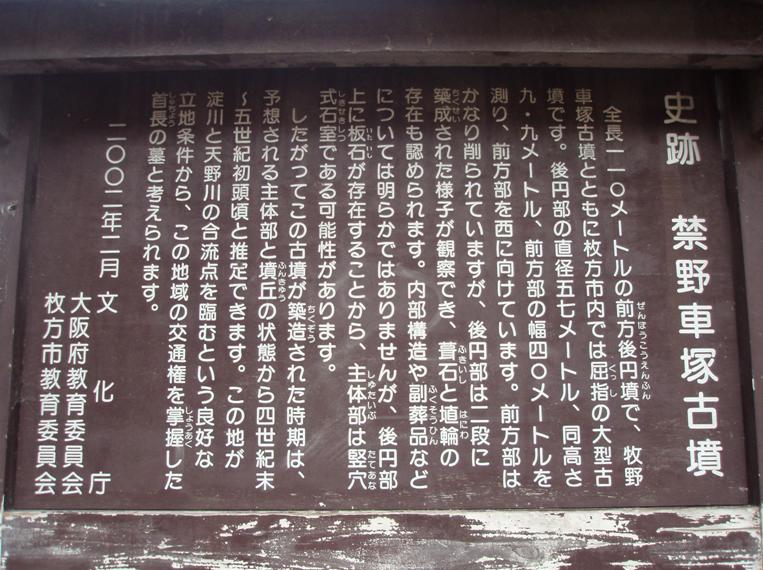 史跡　禁野車塚古墳
全長一一〇メートルの前方後円墳で、牧野
車塚古墳とともに枚方市内では屈指の大型古
墳です。後円部の直径五七メートル、同高さ
九・九メートル、前方部の幅四〇メートルを
測り、前方部を西に向けています。前方部は
かなり削られていますが、後円部は二段に
築成された様子が観察でき、葺石と埴輪の
存在も認められます。内部構造や副葬品など
については明らかではありませんが、後円部
上に板石が存在することから、主体部は竪穴
式石室である可能性があります。
したがってこの古墳が築造された時期は、
予想される主体部と墳丘の状態から四世紀末
～五世紀初頭頃と推定できます。この地が
淀川と天野川の合流点を臨むという良好な
立地条件から、この地域の交通権を掌握した
首長の墓と考えられます。
二〇〇二年二月
文化庁
大阪府教育委員会
枚方市教育委員会